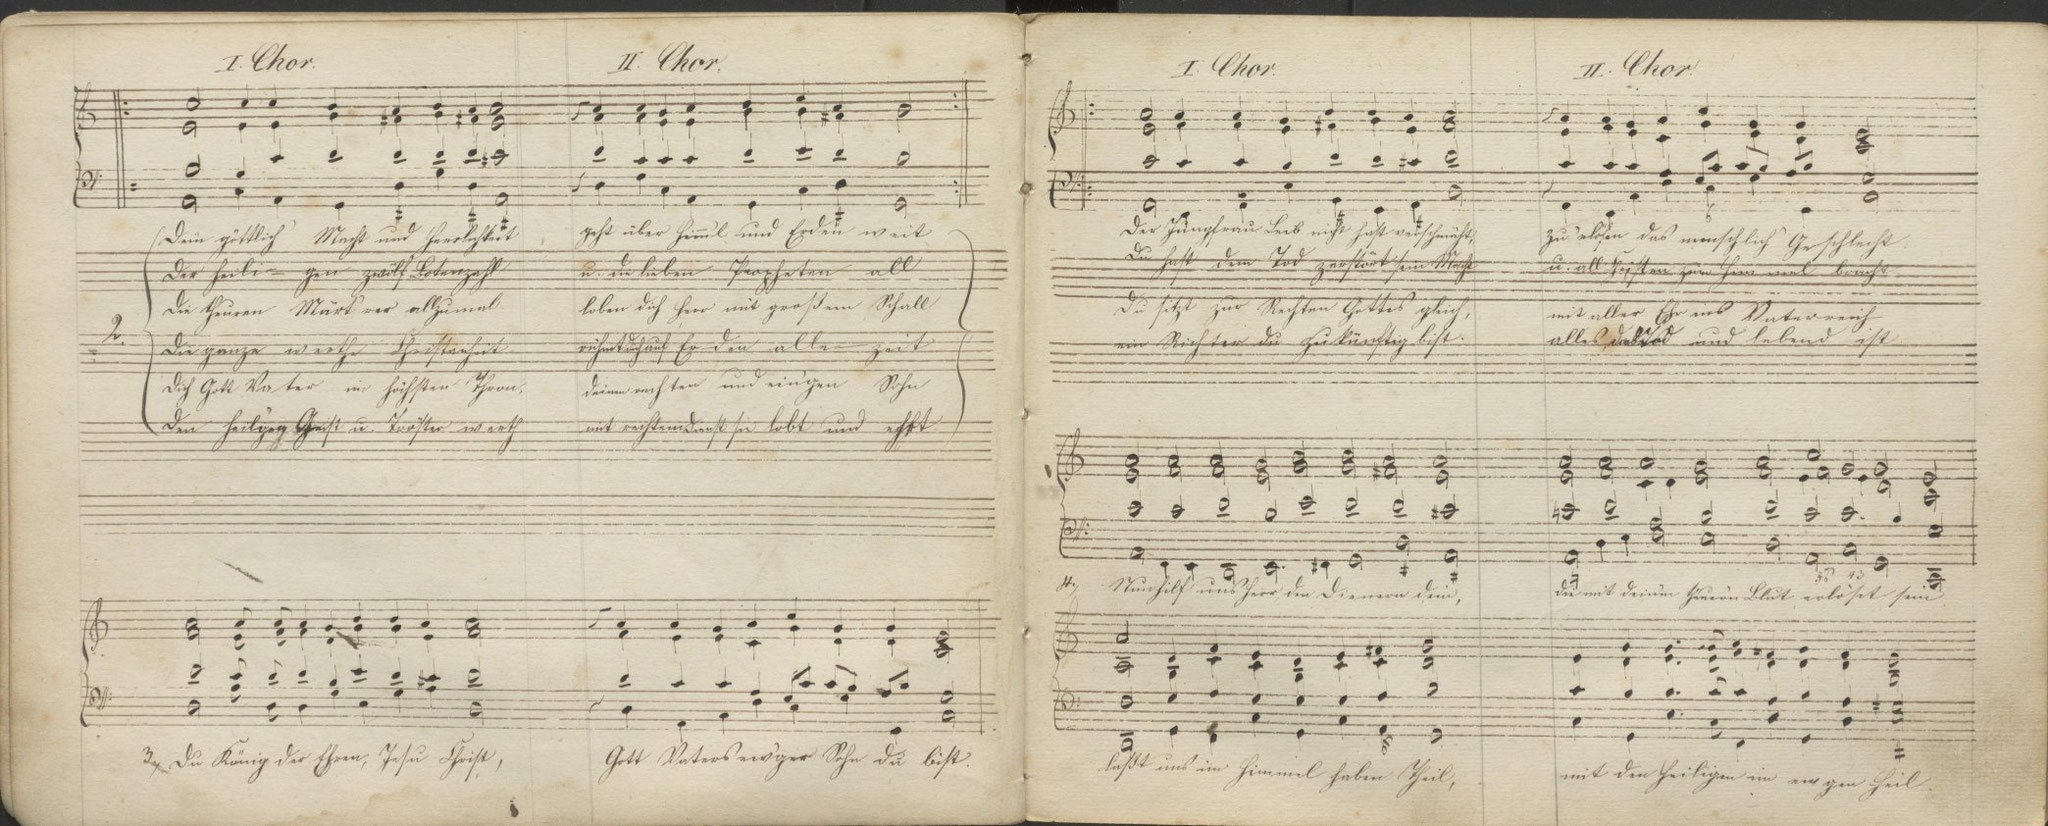 I. Chor. II. Chor.
Dein göttlich Macht und Herrlichkeit geht über Himm'l und Erden weit
Der heili- gen zwölf Botenzahl u. die lieben Propheten all
Die theuren Märt'rer allzumal loben dich Herr mit großem Schall
2. Die ganze werthe Christenheit rühmt dich auf Er-den alle- zeit
Dich Gott Vater im höchsten Thron, deinen rechten und ein'gen Sohn
Den heilgen Geist u. Tröster werth mit rechtem Dienst sie lobt und ehrt
3, Du König der Ehren, Jesu Christ, Gott Vaters ew'ger Sohn du bist.
I. Chor. II. Chor
Der Jungfrau Leib nicht hast verschmäht, zu 'rlösen das menschlich Geschlecht.
Du hast dem Tod zerstört sein Macht u. all Christen zum Himmel bracht
Du sitzt zur Rechten Gottes gleich, mit aller Ehr ins Vaterreich
ein Richter du zukünftig bist. alles das tod und lebend ist
4, Nun hilf uns Herr den Dienern dein, die mit deinem theuren Blut erlöset sein
laßt uns im Himmel haben Theil, mit den Heiligen im ewgen Heil.